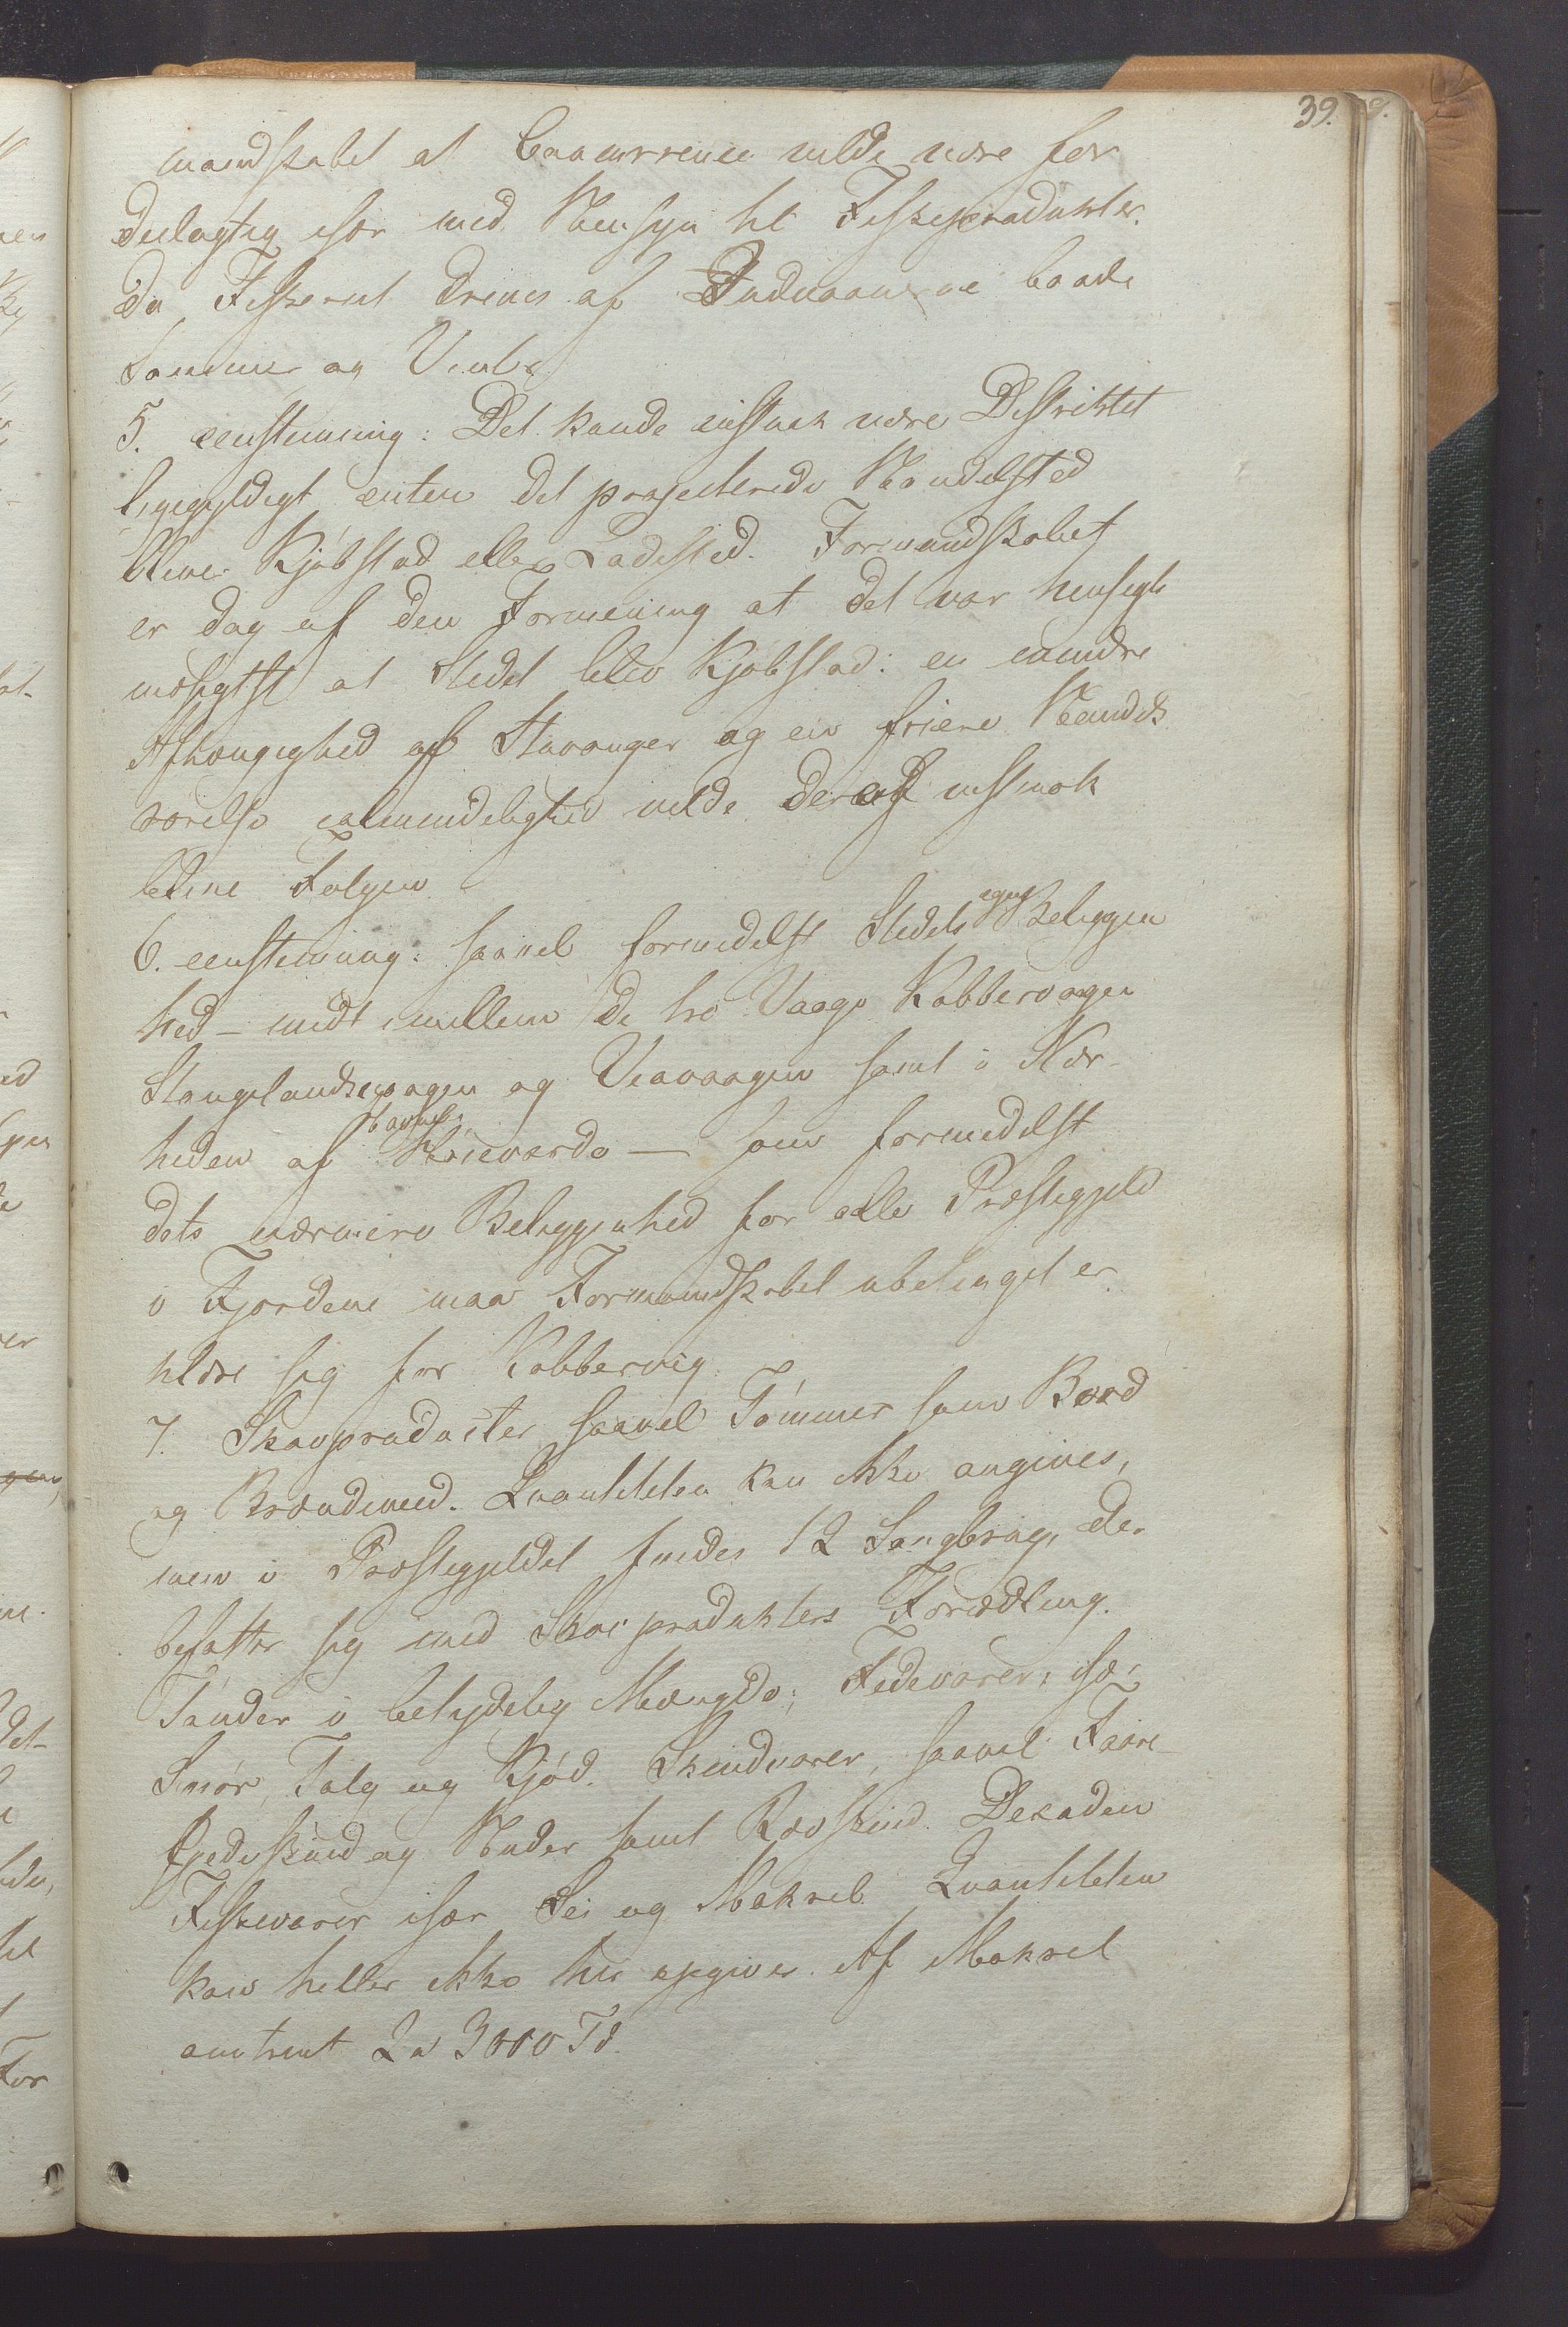 39.
mandskabet at Concurrence vilde være for
deelagtig især med Hensyn til Fiskeprodukter.
da Fiskeriet drives af Indvaanerne baade
Sommer og Vinter
5. eenstemmig: Det kunde vistnok være Distriktet
ligegyldigt enten det projecterede Handelsted
bliver Kjøbstad eller Ladested. Formandskabet
er dog af den Formening at det var hensigts
mæsigtst at Stedet blev Kjøbstad: en mindre
Afhængighed af Stavanger og en friere Handels
rørelse i almindelighed vilde deraf vistnok
blive Følgen
6. eenstemmig: saavel formedelst Stedets Beliggen
hed – midt imellem de tre Vaage Kobbervaagen
Stangelandsvaagen og Veavaagen samt i Nær-
heden af Høievarde – som formedelst
dets nærmere Beliggenhed for alle Præstegjeld
i Fjordene maa Formandskabet ubetinget er
klære sig for Kobbervig.
7. Skovprodukter saavel Tømmer som Bord
og Brændeved. Qvantiteten kan ikke angives,
men i Præstegjeldet findes 12 Saugbrug, der
befatter sig med Skovprodukters Forædling.
Tønder i betydelig Mængde; Fedevarer: især
Smør, Talg og Kjød. Skindvarer, saavel Faare
Gjedeskind og Huder samt Rævskind. Desuden
Fiskevarer især Sei og Makrel Qvantiteten
kan heller ikke her opgives. Af Makrel
omtrent 2 a 3000 Td.